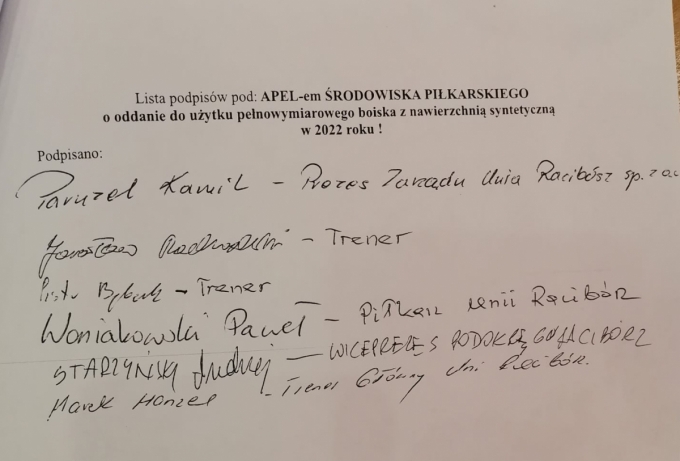 Lista podpisów pod: APEL-em ŚRODOWISKA PIŁKARSKIEGO
o oddanie do użytku pełnowymiarowego boiska z nawierzchnią syntetyczną
w 2022 roku !
Podpisano:
Paruzel Kamil - Prezes Zarządu Unia Racibórz sp. z oo
Jarosław - Trener
Piotr - Trener
Woniakowski Paweł - Piłkarz Unii Racibórz
STARZYŃSKI Andrzej - WICEPREZES PODOKRĘGU RACIBÓRZ
Marek Hanzel - Trener Główny Unii Racibórz.